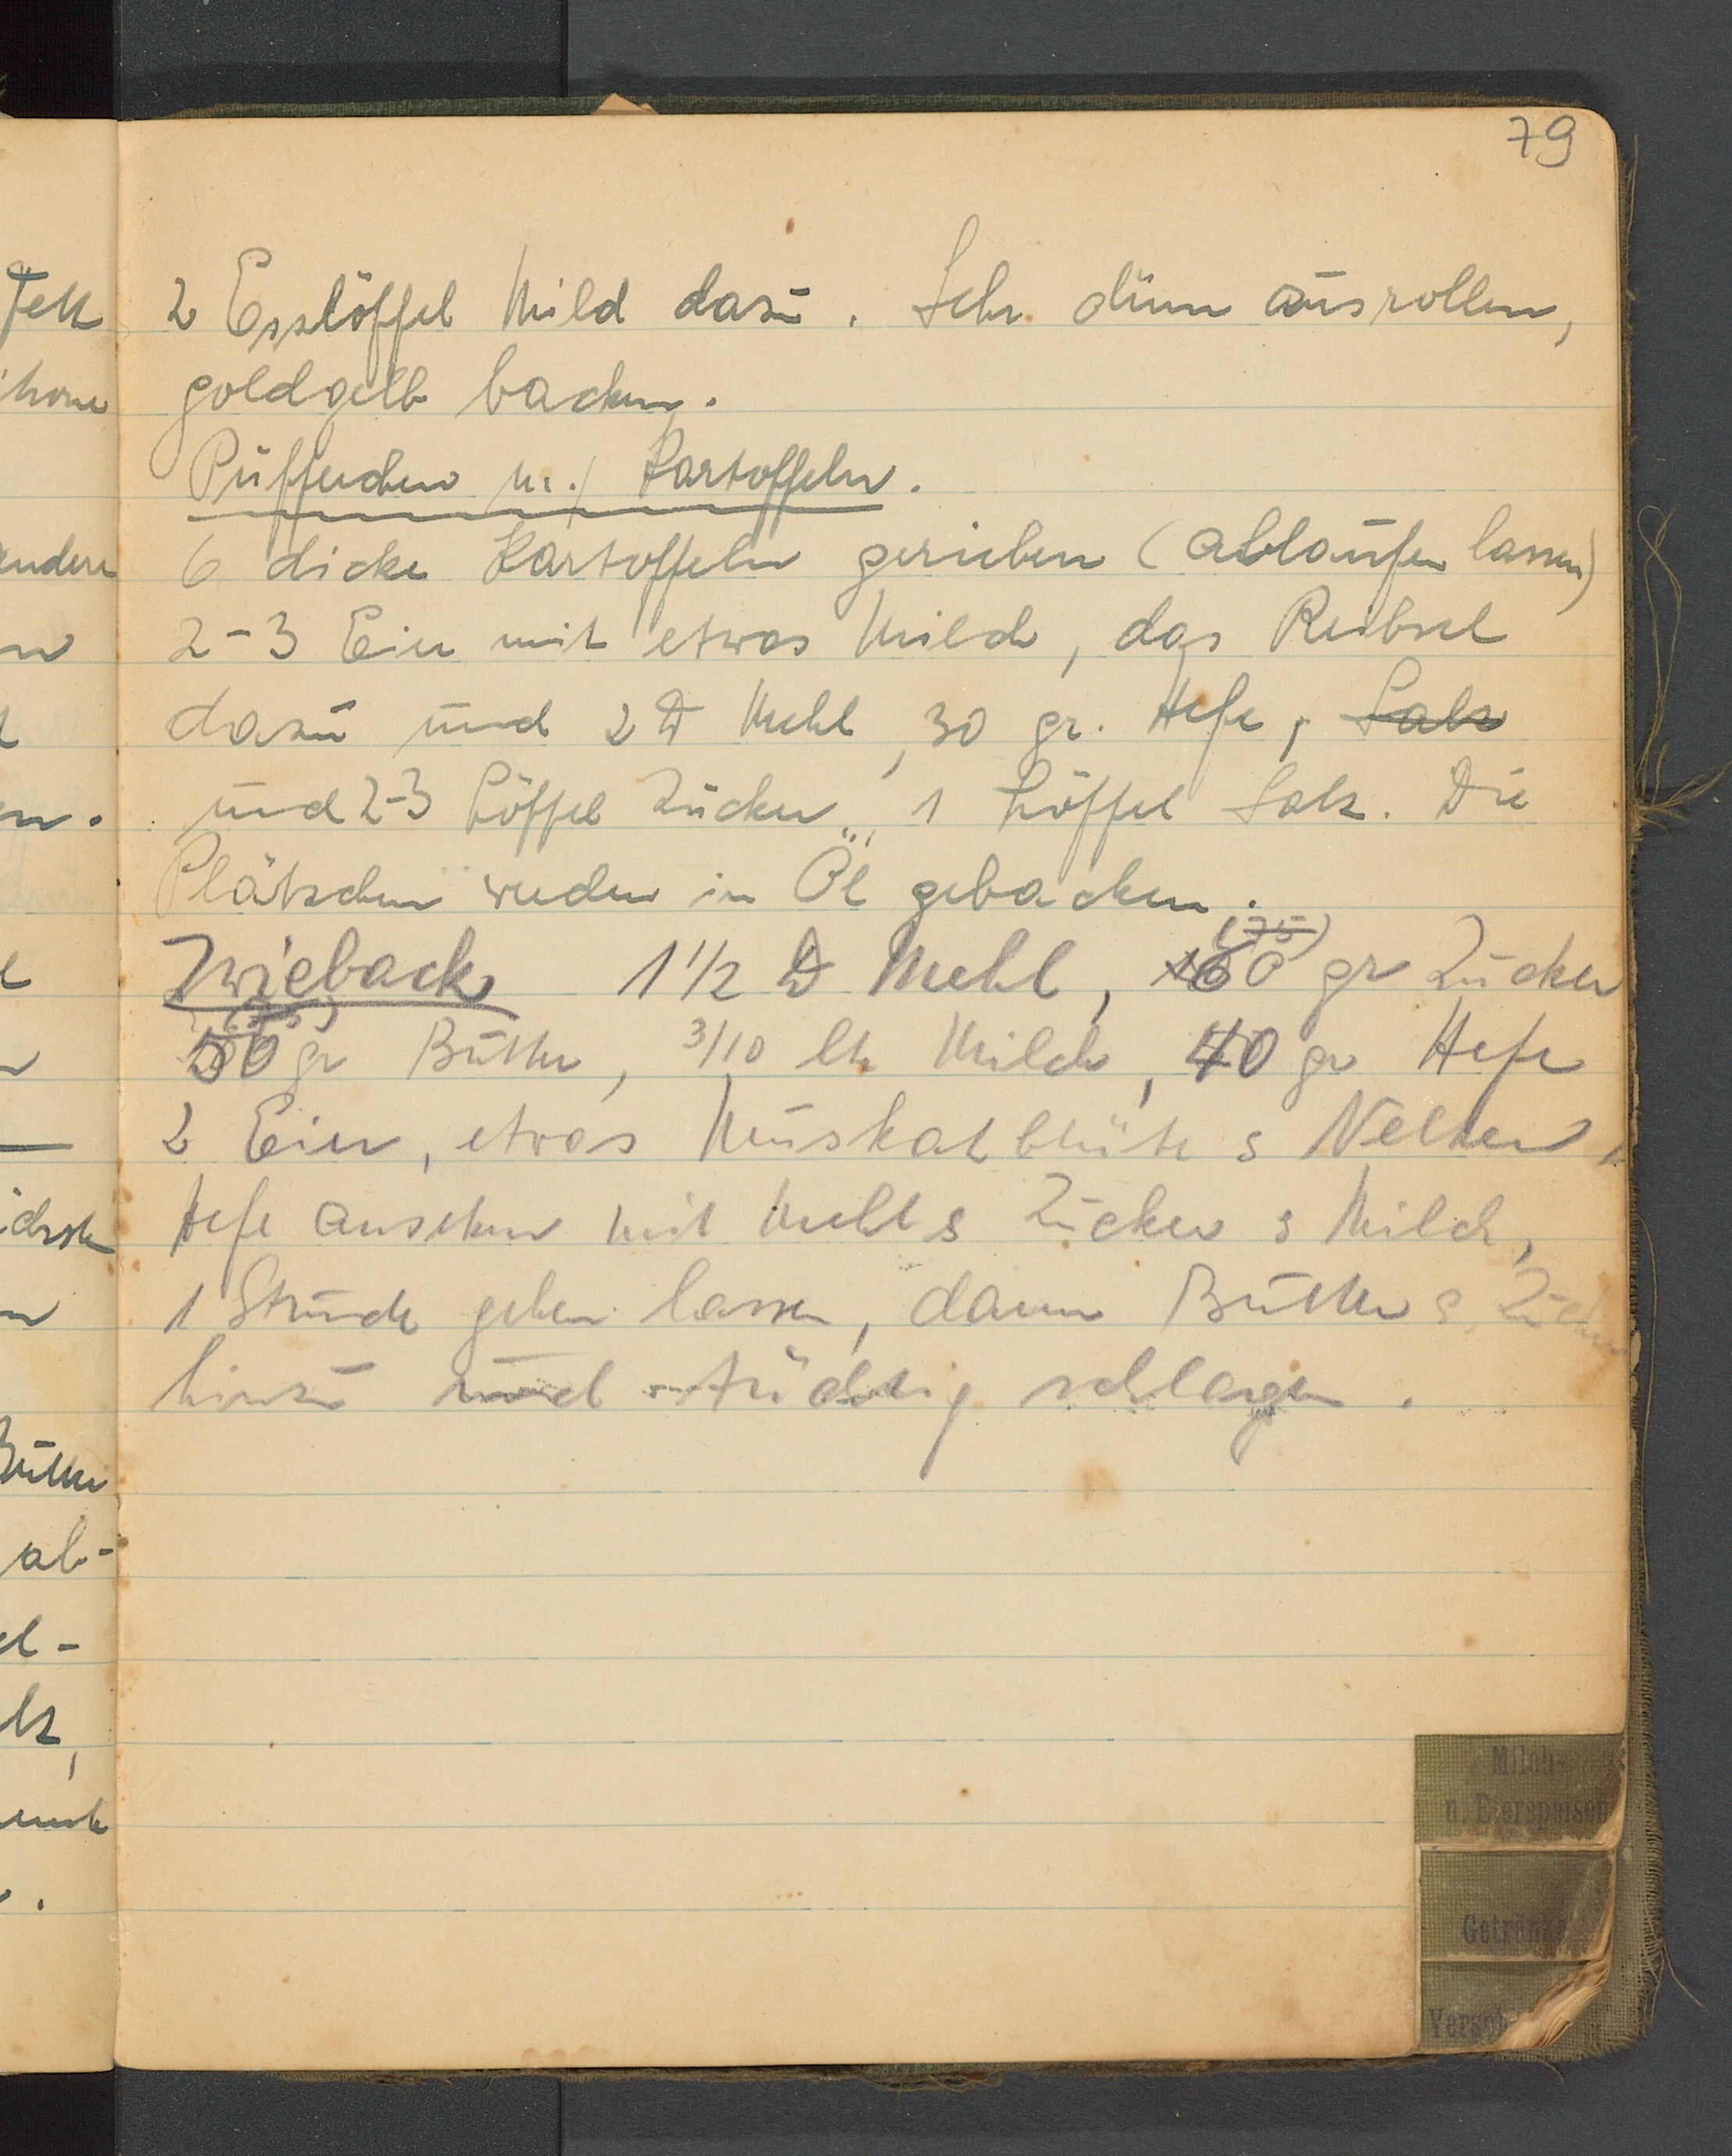 79
2 Esslöffel Milch dazu. Sehr dünn ausrollen,
goldgelb backen.
Püfferchen m./ Kartoffeln.
6 dicke Kartoffeln gerieben (ablaufen lassen)
2-3 Eier mit etwas Milch, das Reibsel
dazu und 2 ℔ Mehl, 30 gr. Hefe, Salz
und 2-3 Löffel Zucker, 1 Löffel Salz. Die
Plätzchen werden in Öl gebacken.
Zwieback 1 1/2 ℔ Mehl, (75) gr Zucker
(75) 50 gr Butter, 3/10 ltr Milch, 40 gr Hefe
2 Eier, etwas Muskatblüte & Nelken,
Hefe ansetzen mit Mehl & Zucker & Milch,
1 Stunde gehen lassen, dann Butter & Zucker
hinzu und tüchtig schlagen.
Milch-
u. Eierspeisen
Getränke
Fett
andere
Butter
ab-